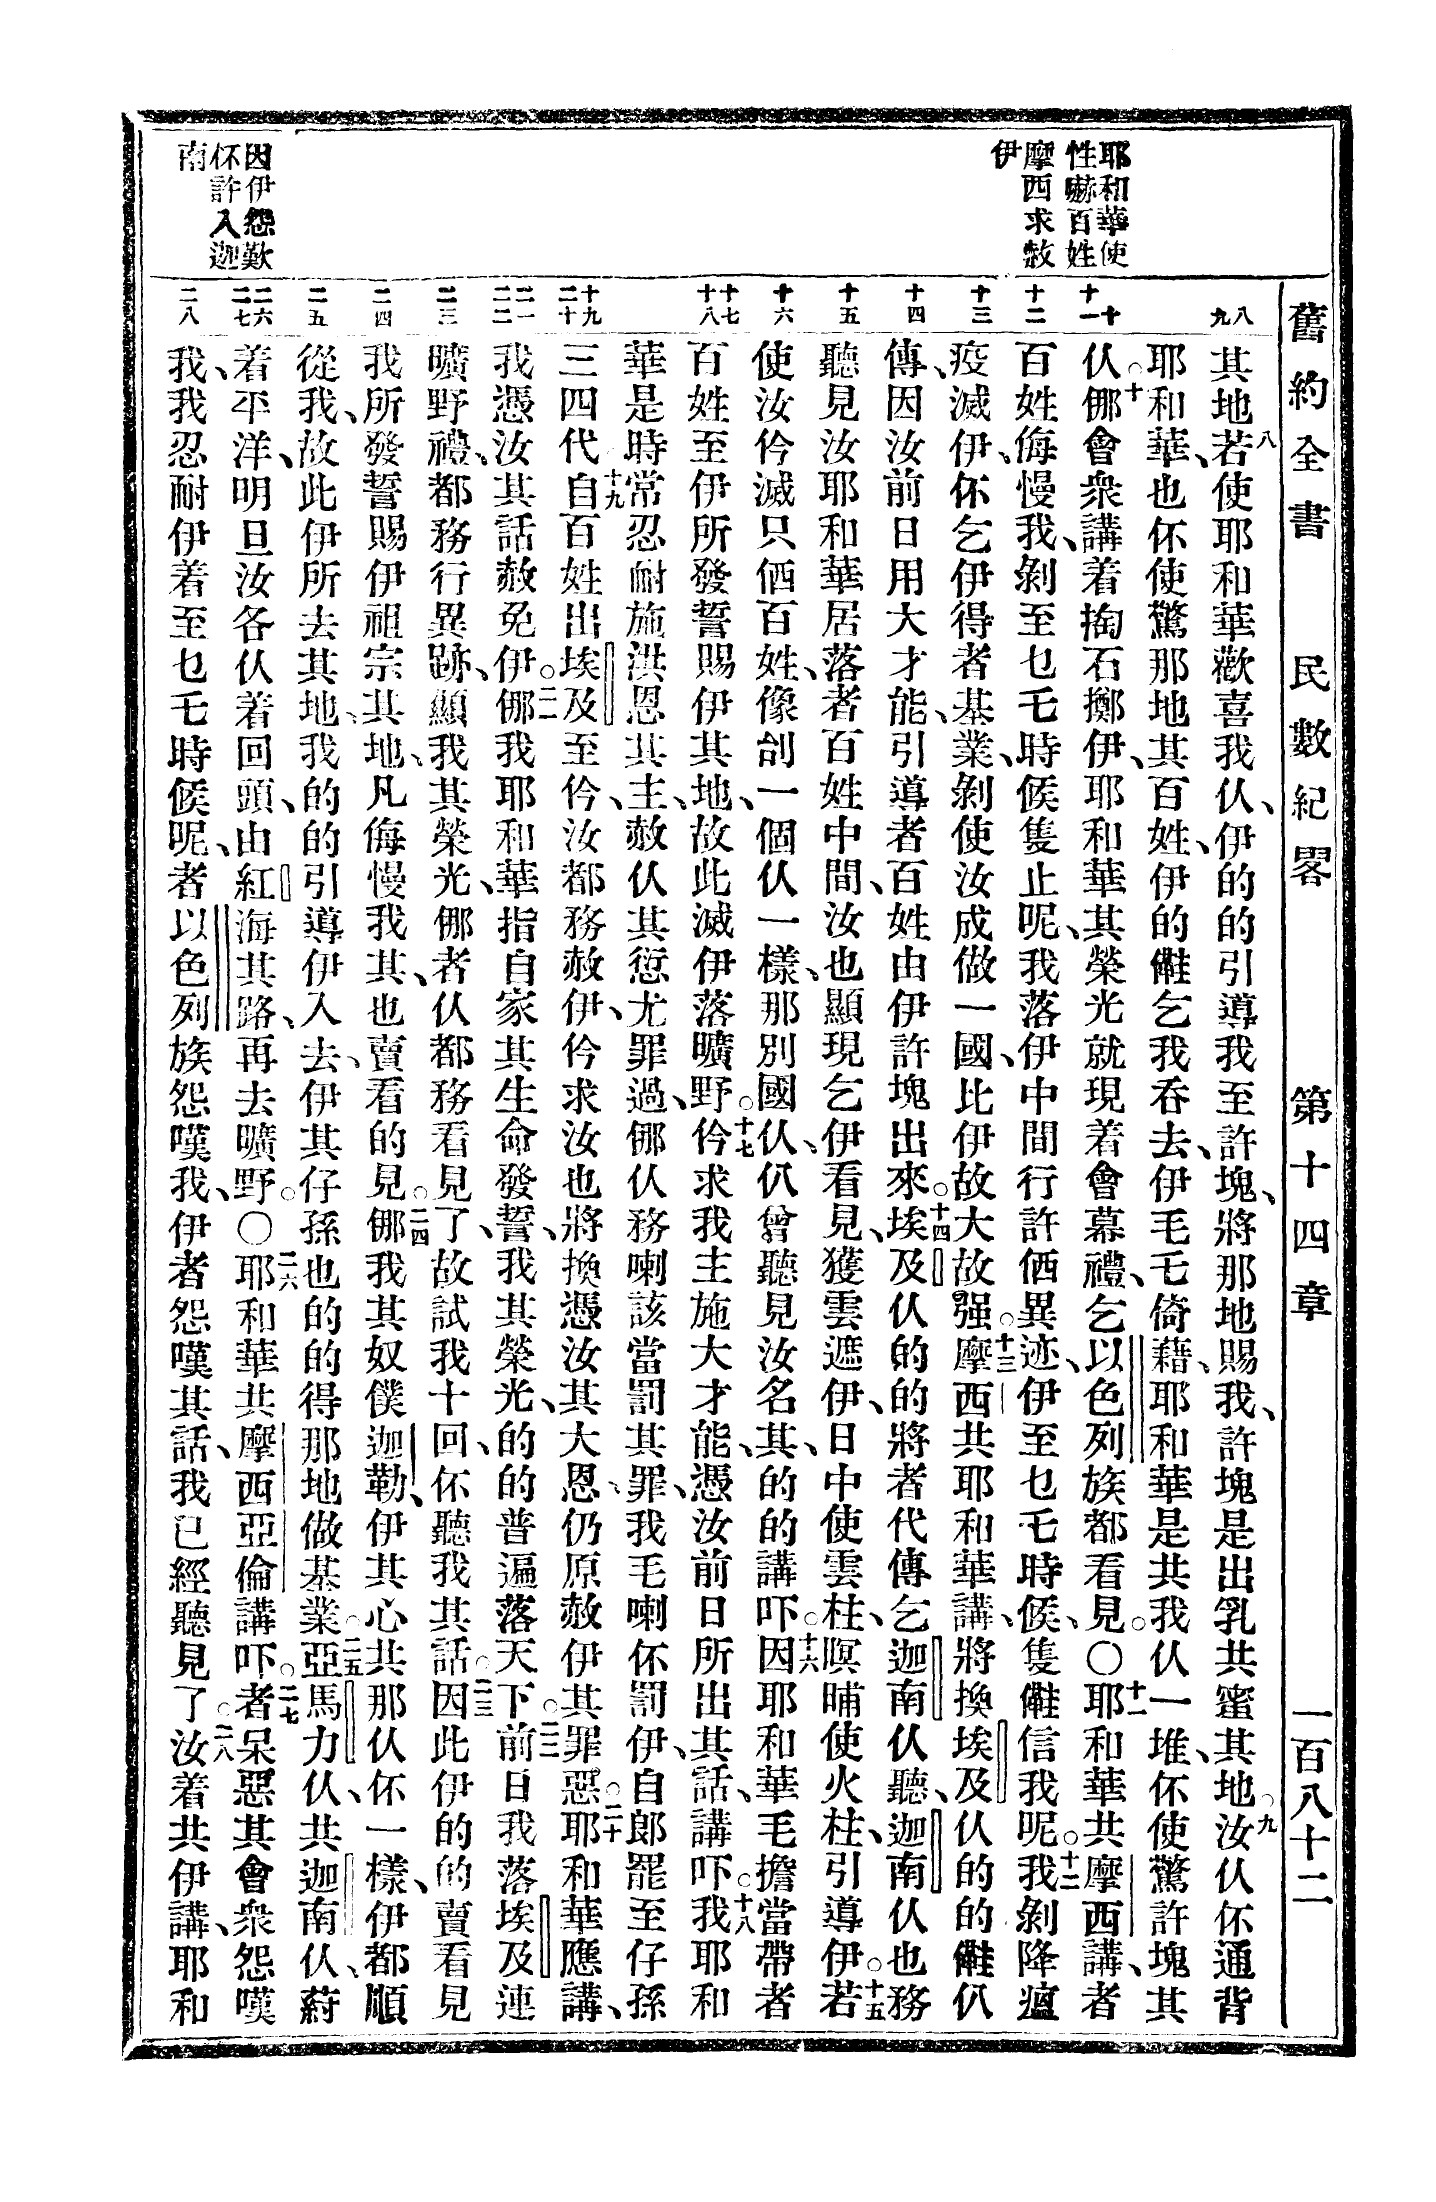 舊約全書 民數紀畧 第十四章 一百八十二
耶和華使
性嚇百姓
摩西求赦
伊
因伊怨歎
伓許入迦
南
八 九 十 十一 十二 十三 十四 十五 十六 十七 十八 十九 二十 二一 二二 二三 二四 二五 二六 二七 二八
其地八若使耶和華歡喜我仈、伊的的引導我至許塊、將那地賜我、許塊是出乳共蜜其地○九汝仈伓通背
耶和華、也伓使驚那地其百姓、伊的乞我吞去、伊毛乇倚藉、耶和華是共我仈一堆、伓使驚許塊其
仈○十㑚會衆講着掏石擲伊、耶和華其榮光就現着會幕禮、乞以色列族都看見○〇十一耶和華共摩西講、者
百姓侮慢我、剝至乜乇時候隻止呢、我落伊中間行許㑚異迹、伊至乜乇時候、隻信我呢○十二我剝降瘟
疫滅伊、伓乞伊得者基業、剝使汝成做一國、比伊故大故强○十三摩西共耶和華講、將換埃及仈的的仈
傳、因汝前日用大才能、引導者百姓由伊許塊出來○十四埃及仈的的將者代傳乞迦南仈聽、迦南仈也務
聽見汝耶和華居落者百姓中間、汝也顯現乞伊看見、獲雲遮伊、日中使雲柱、暝晡使火柱、引導伊○十五若
使汝仱滅只百姓、像刣一個仈一樣、那別國仈、仈曾聽見汝名其、的的講吓○十六因耶和華毛擔當帶者
百姓至伊所發誓賜伊其地、故此滅伊落曠野○十七仱求我主施大才能、憑汝前日所出其話、講吓○十八我耶和
華是時常忍耐施洪恩其主、赦仈其愆尤罪過、㑚仈務喇該當罰其罪、我毛喇伓罰伊、自郎罷至仔孫
三四代十九自百姓出埃及至仱、汝都務赦伊、仱求汝也將換憑汝其大恩、仍原赦伊其罪惡○二十耶和華應講、
我憑汝其話赦免伊○二一㑚我耶和華指自家其生命發誓、我其榮光、的的普遍落天下○二二前日我落埃及連
曠野禮、都務行異跡、顯我其榮光、㑚者仈都務看見了、故試我十回、伓聽我其話○二三因此伊的的賣看見
我所發誓賜伊祖宗其地、凡侮慢我其、也賣看的見○二四㑚我其奴僕迦勒、伊其心共那仈伓一樣、伊都順
從我、故此伊所去其地、我的的引導伊入去、伊其仔孫也的的得那地做基業○二五亞馬力仈、共迦南仈、
着平洋、明旦汝各仈着回頭、由紅海其路、再去曠野○〇二六耶和華共摩西亞倫講吓○二七者呆惡其會衆怨嘆
我、我忍耐伊着至乜乇時候呢、者以色列族怨嘆我、伊者怨嘆其話、我已經聽見了○二八汝着共伊講、耶和